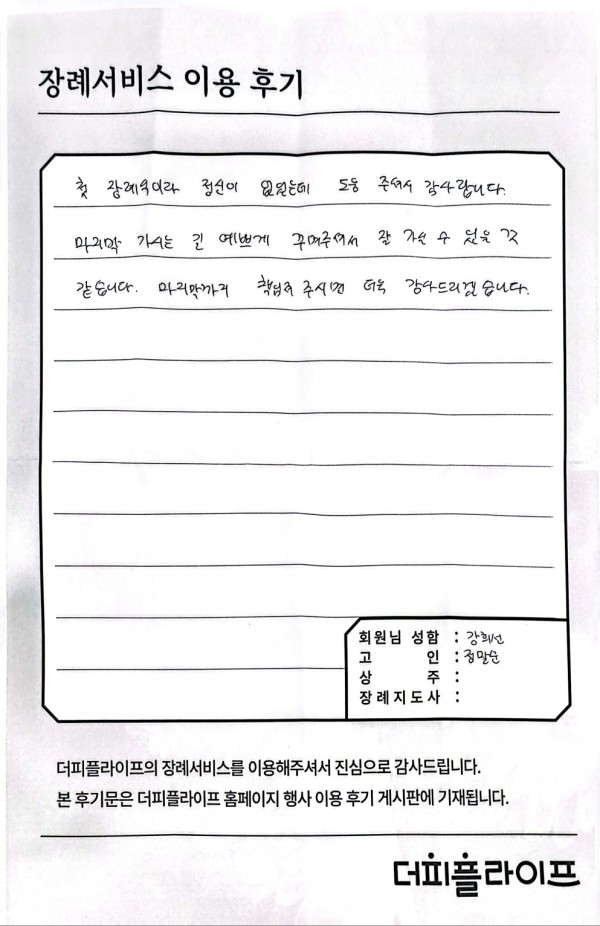 장례서비스 이용 후기
첫 장례식이라 정신이 없었는데 도움 주셔서 감사합니다.
마지막 가시는 길 예쁘게 꾸며주셔서 잘 가실 수 있을 것
같습니다. 마지막까지 책임져 주시면 더욱 감사드리겠습니다.
회원님 성함 : 강희선
고 인 : 정말순
상 주 :
장례지도사 :
더피플라이프의 장례서비스를 이용해주셔서 진심으로 감사드립니다.
본 후기문은 더피플라이프 홈페이지 행사 이용 후기 게시판에 기재됩니다.
더피플라이프